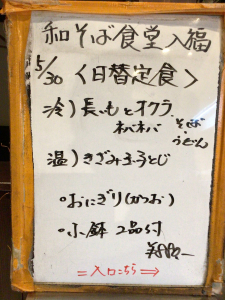 和そば食堂入福
5/30 〈日替定食〉
冷) 長いもとオクラ
ネバネバ そば うどん
温) きざみ玉子とじ
・おにぎり(かつお)
・小鉢 2品付
¥880-
=入口こちら⇒